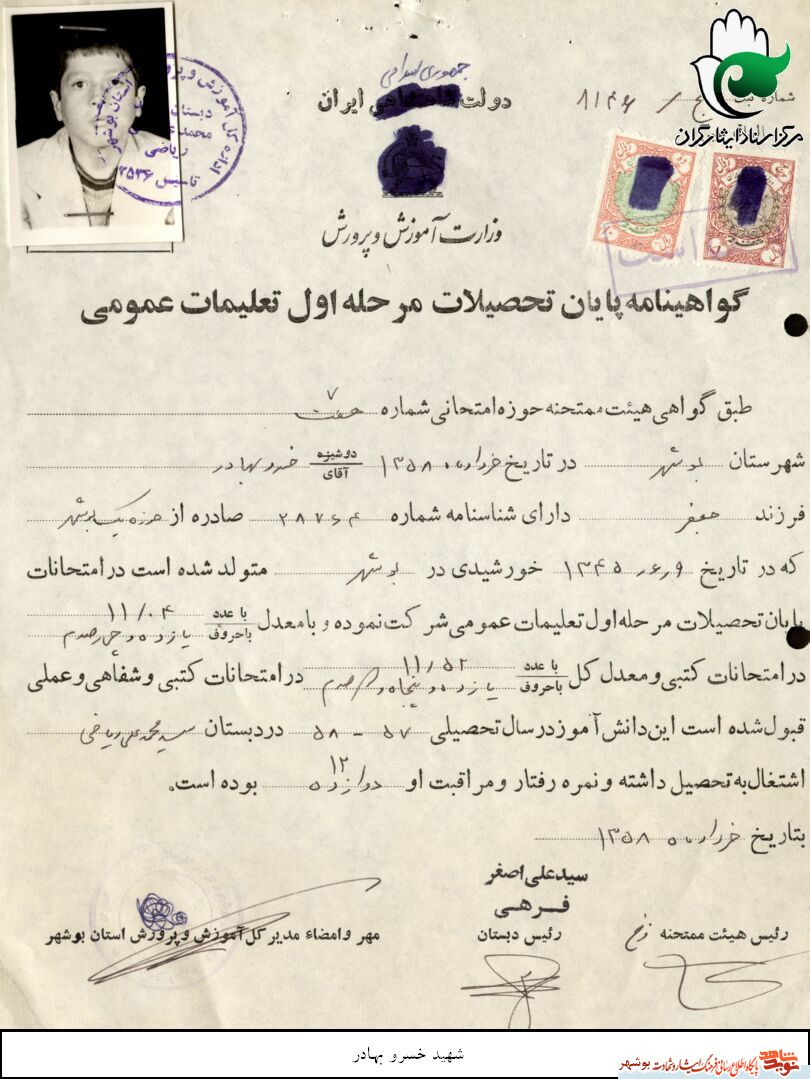 جمهوری اسلامی
دولت شاهنشاهی ایران
شماره ثبت ۸۱۴۶
مرکز اسناد ایثارگران
اداره کل آموزش و پرورش
استان بوشهر
دبستان
محمد
ریاضی
تاسیس ۲۵۳۶
وزارت آموزش و پرورش
گواهینامه پایان تحصیلات مرحله اول تعلیمات عمومی
طبق گواهی هیئت ممتحنه حوزه امتحانی شماره ۷ هفت
شهرستان بوشهر در تاریخ خرداد ماه ۱۳۵۸ دوشیزه آقای خسرو بهادر
فرزند جعفر دارای شناسنامه شماره ۲۸۷۶۴ صادره از حوزه یک بوشهر
که در تاریخ ۹ر۶ر۱۳۴۵ خورشیدی در بوشهر متولد شده است در امتحانات
پایان تحصیلات مرحله اول تعلیمات عمومی شرکت نموده و با معدل با عدد ۱۱/۰۴ باحروف یازده و چهار صدم
در امتحانات کتبی و معدل کل با عدد ۱۱/۵۲ باحروف یازده و پنجاه و دو صدم در امتحانات کتبی و شفاهی و عملی
قبول شده است این دانش آموز در سال تحصیلی ۵۷ - ۵۸ در دبستان سید محمد علی ریاضی
اشتغال به تحصیل داشته و نمره رفتار و مراقبت او ۱۲ دوازده بوده است.
بتاریخ خرداد ماه ۱۳۵۸
سید علی اصغر
فرهی
رئیس هیئت ممتحنه
رئیس دبستان
مهر و امضاء مدیر کل آموزش و پرورش استان بوشهر
شهید خسرو بهادر
نوید شاهد
پایگاه اطلاع رسانی فرهنگ ایثار و شهادت بوشهر